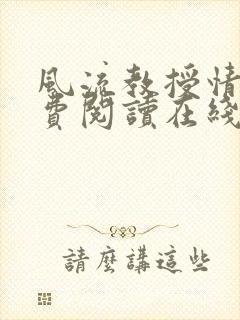 風流教授情
費閱讀在綫
請麼講這些